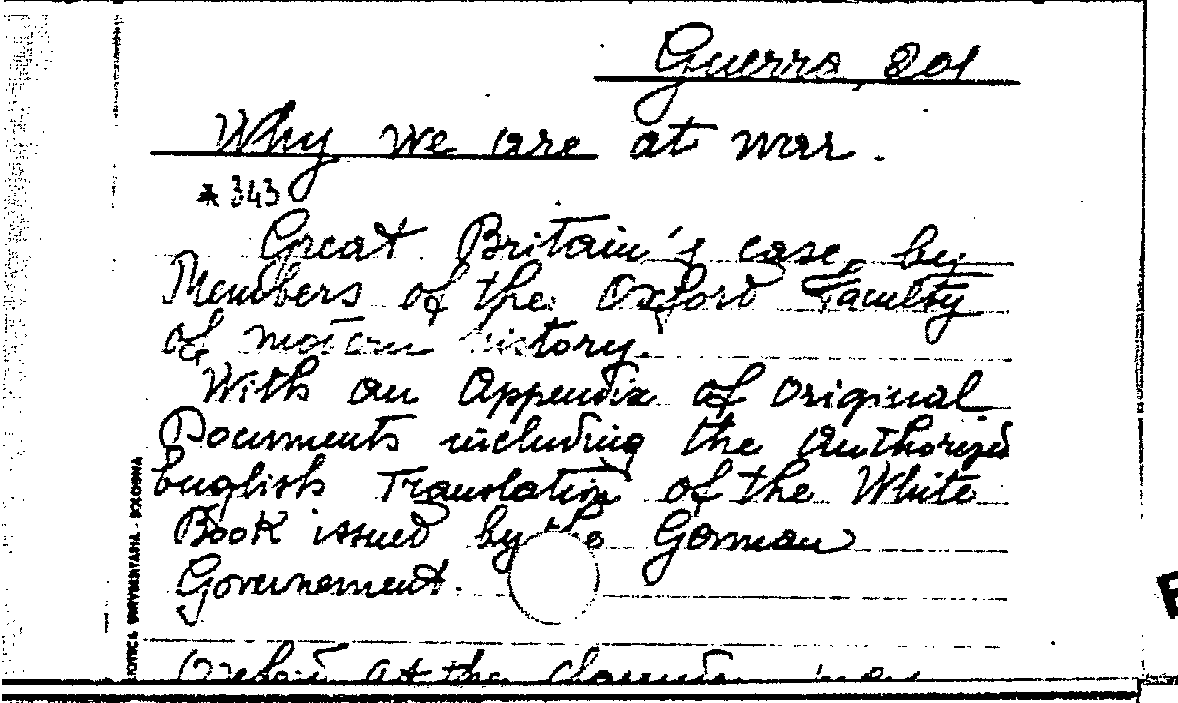 Guerra, 201
Why we are at war.
* 343
Great Britain's case, by
Members of the Oxford Faculty
of modern history.
With an Appendix of Original
Documents including the Authorized
English Translation of the White
Book issued by the German
Governement.
Oxford At the Clarendon